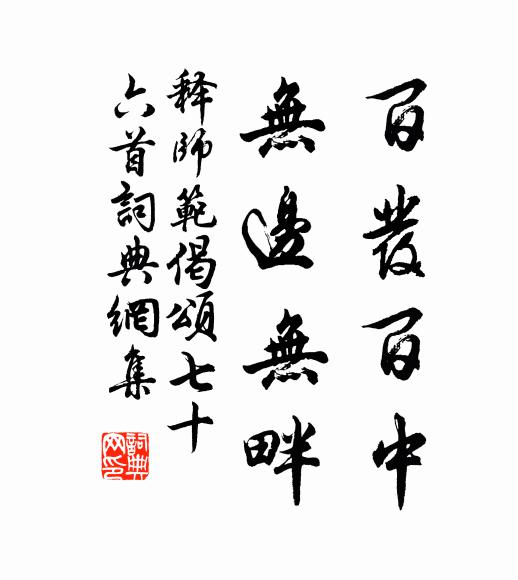 百發百中
無邊無畔
释師範偈頌七十
六首詞典網集
詞典網印